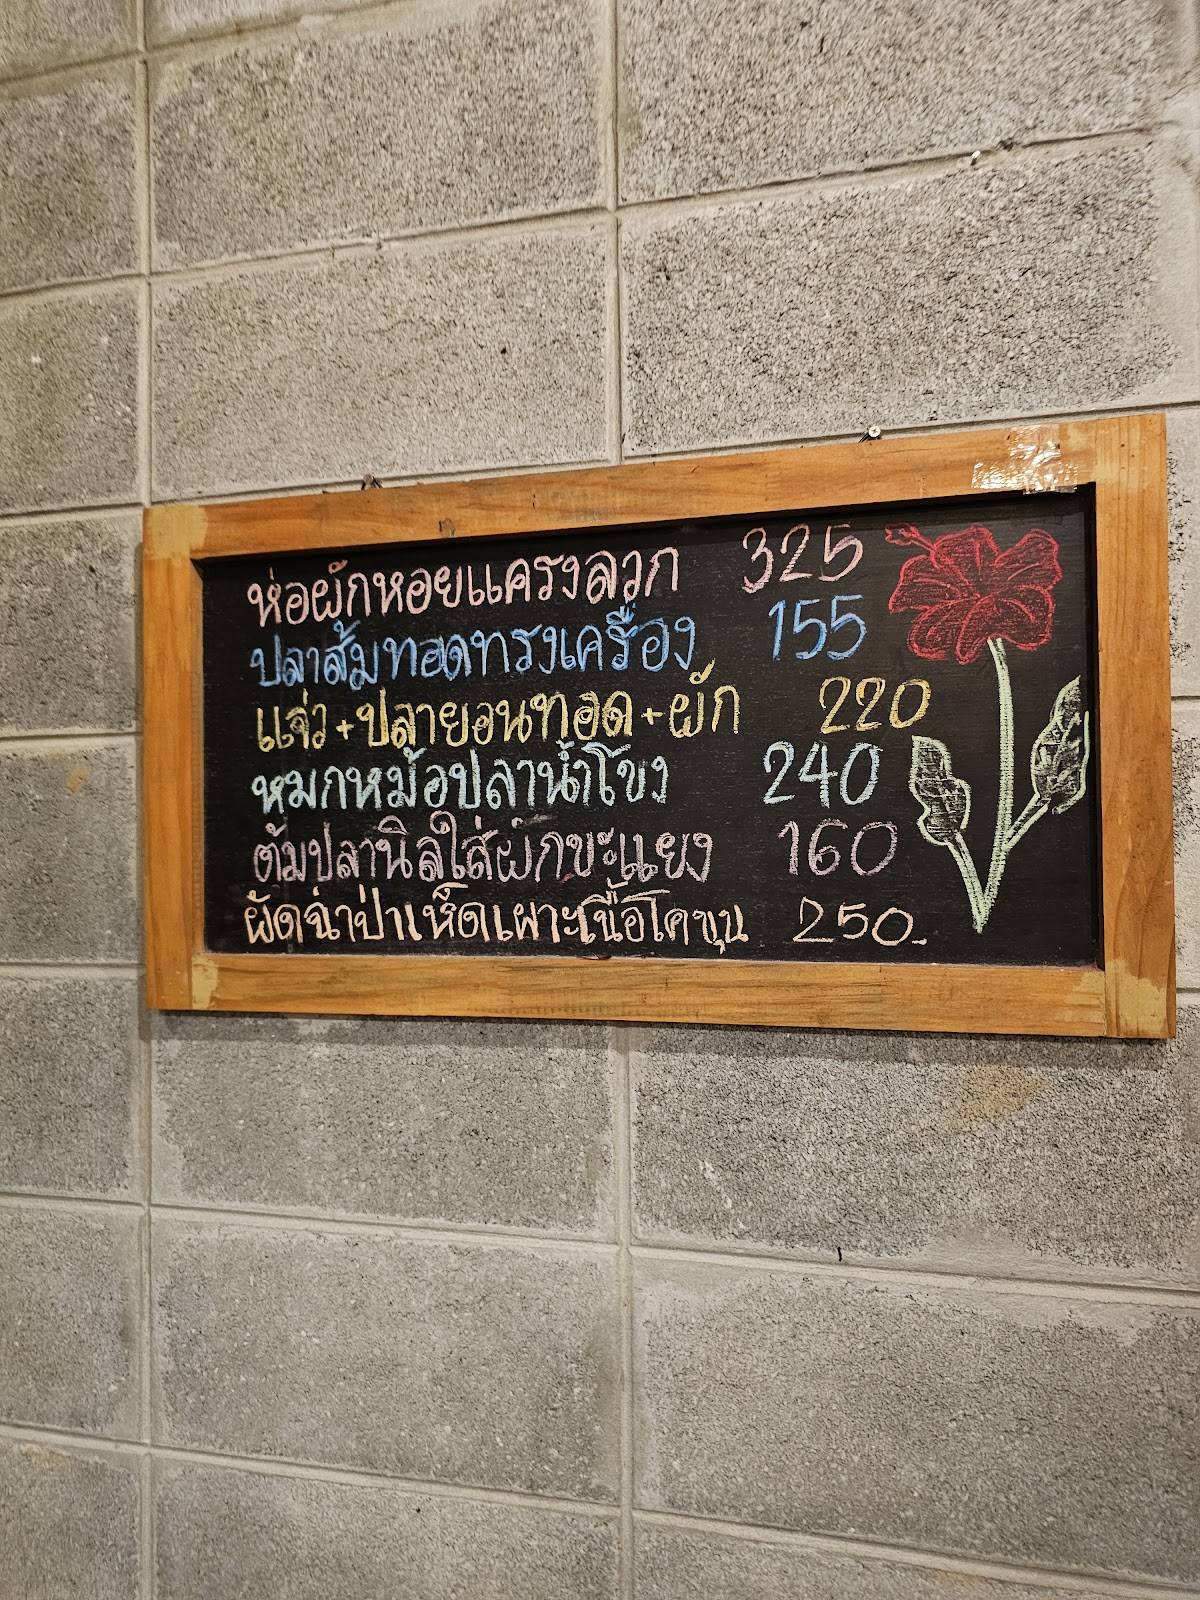 ห่อผักหอยแครงลวก 325
ปลาส้มทอดทรงเครื่อง 155
แจ่ว+ปลายอนทอด+ผัก 220
หมกหม้อปลาน้ำโขง 240
ต้มปลานิลใส่ผักขะแยง 160
ผัดฉ่าป่าเห็ดเผาะเนื้อโคขุน 250.-